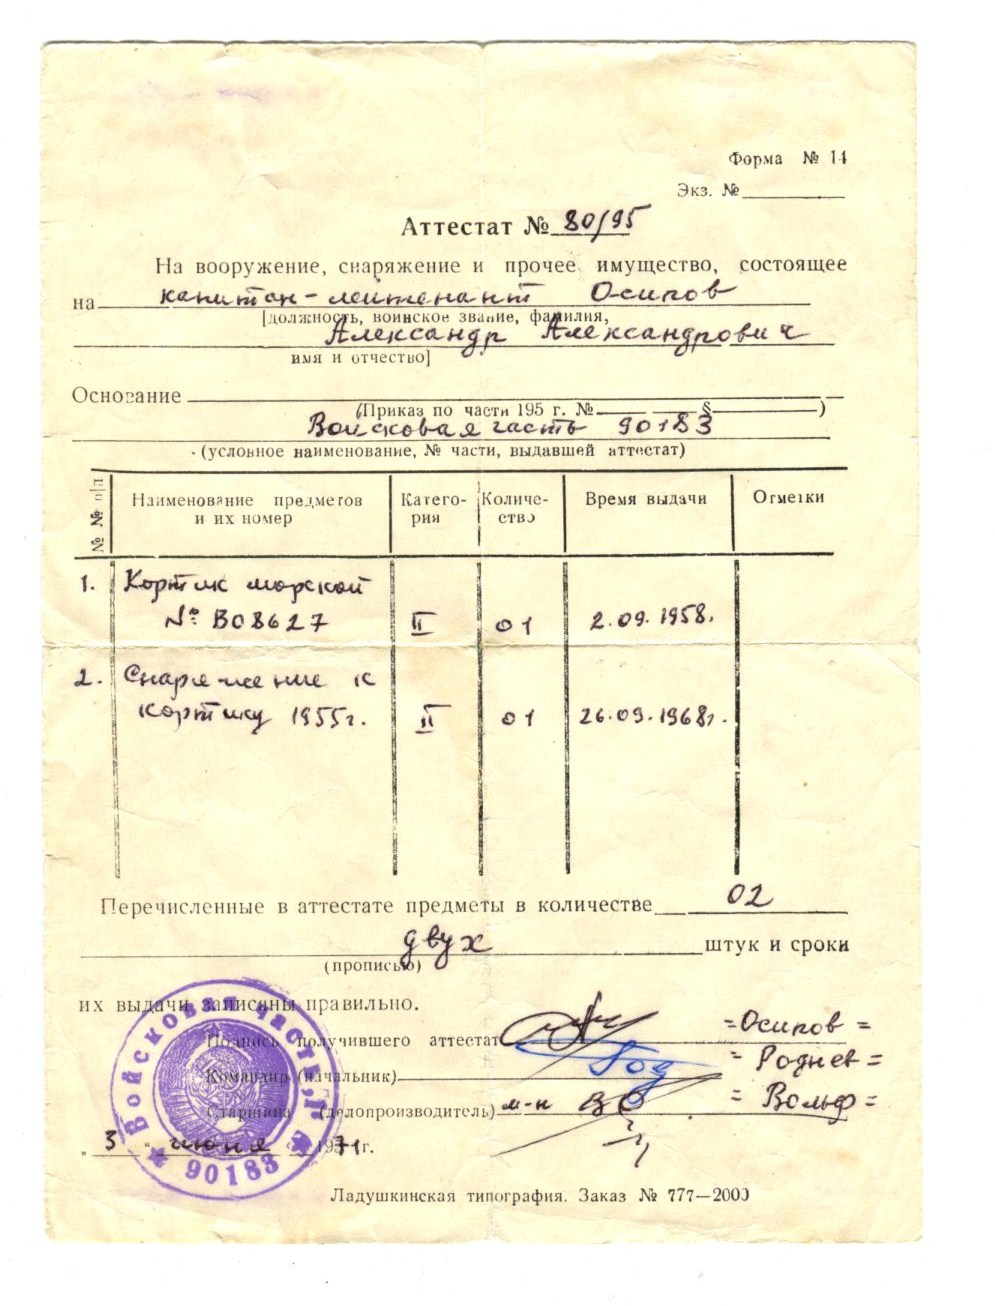 Форма № 14
Экз. №
Аттестат № 80/95
На вооружение, снаряжение и прочее имущество, состоящее
на капитан-лейтенант Осипов
[должность, воинское звание, фамилия,
Александр Александрович
имя и отчество]
Основание
(Приказ по части 195 г. № § )
Войсковая часть 90183
(условное наименование, № части, выдавшей аттестат)
№ № п/п
Наименование предметов и их номер
Катего-рия
Количе-ство
Время выдачи
Отметки
1. Кортик морской
№ В08627 II 01 2.09.1958.
2. Снаряжение к
кортику 1955г. II 01 26.09.1968г.
Перечисленные в аттестате предметы в количестве 02
двух штук и сроки
(прописью)
их выдачи записаны правильно.
Подпись получившего аттестат =Осипов=
Командир (начальник) =Роднев=
Старшина (делопроизводитель) м-н =Вольф=
„ 3 “ июня 1971г.
Войсковая часть
90183
Ладушкинская типография. Заказ № 777—2000